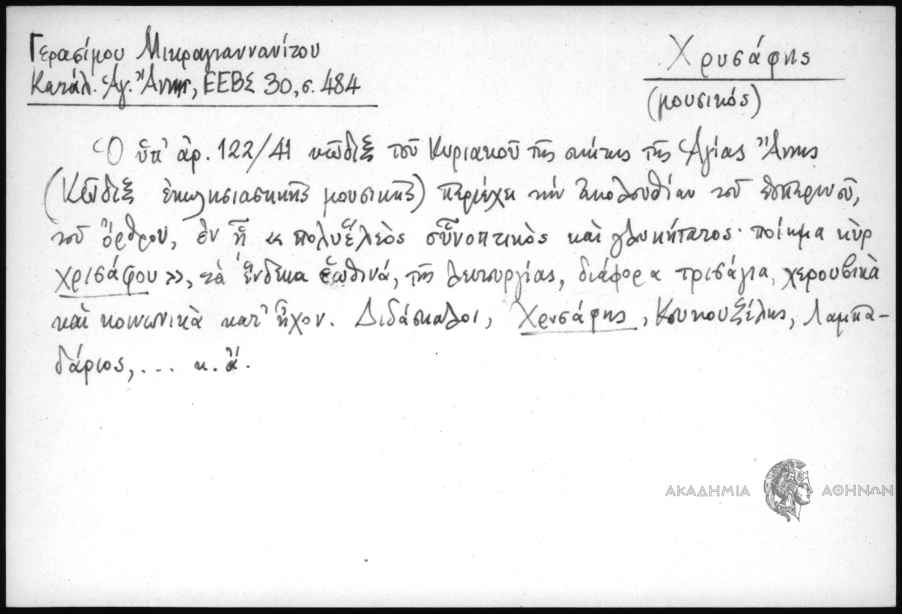 Γερασίμου Μικραγιαννανίτου
Κατάλ. Ἁγ. Ἄννης, ΕΕΒΣ 30, σ. 484
Χρυσάφης
(μουσικός)
Ὁ ὑπ' ἀρ. 122/41 κῶδιξ τοῦ Κυριακοῦ τῆς σκήτης τῆς Ἁγίας Ἄννης
(Κῶδιξ ἐκκλησιαστικῆς μουσικῆς) περιέχει τὴν ἀκολουθίαν τοῦ ἑσπερινοῦ,
τοῦ ὄρθρου, ἐν ᾗ « πολυέλεος συνοπτικὸς καὶ γλυκήτατος· ποίημα κὺρ
Χρισάφου », τὰ ἕνδεκα ἑωθινά, τῆς λειτουργίας, διάφορα τρισάγια, χερουβικὰ
καὶ κοινωνικὰ κατ' ἦχον. Διδάσκαλοι, Χρυσάφης, Κουκουζέλης, Λαμπα-
δάριος, ... κ. ἄ.
ΑΚΑΔΗΜΙΑ ΑΘΗΝΩΝ